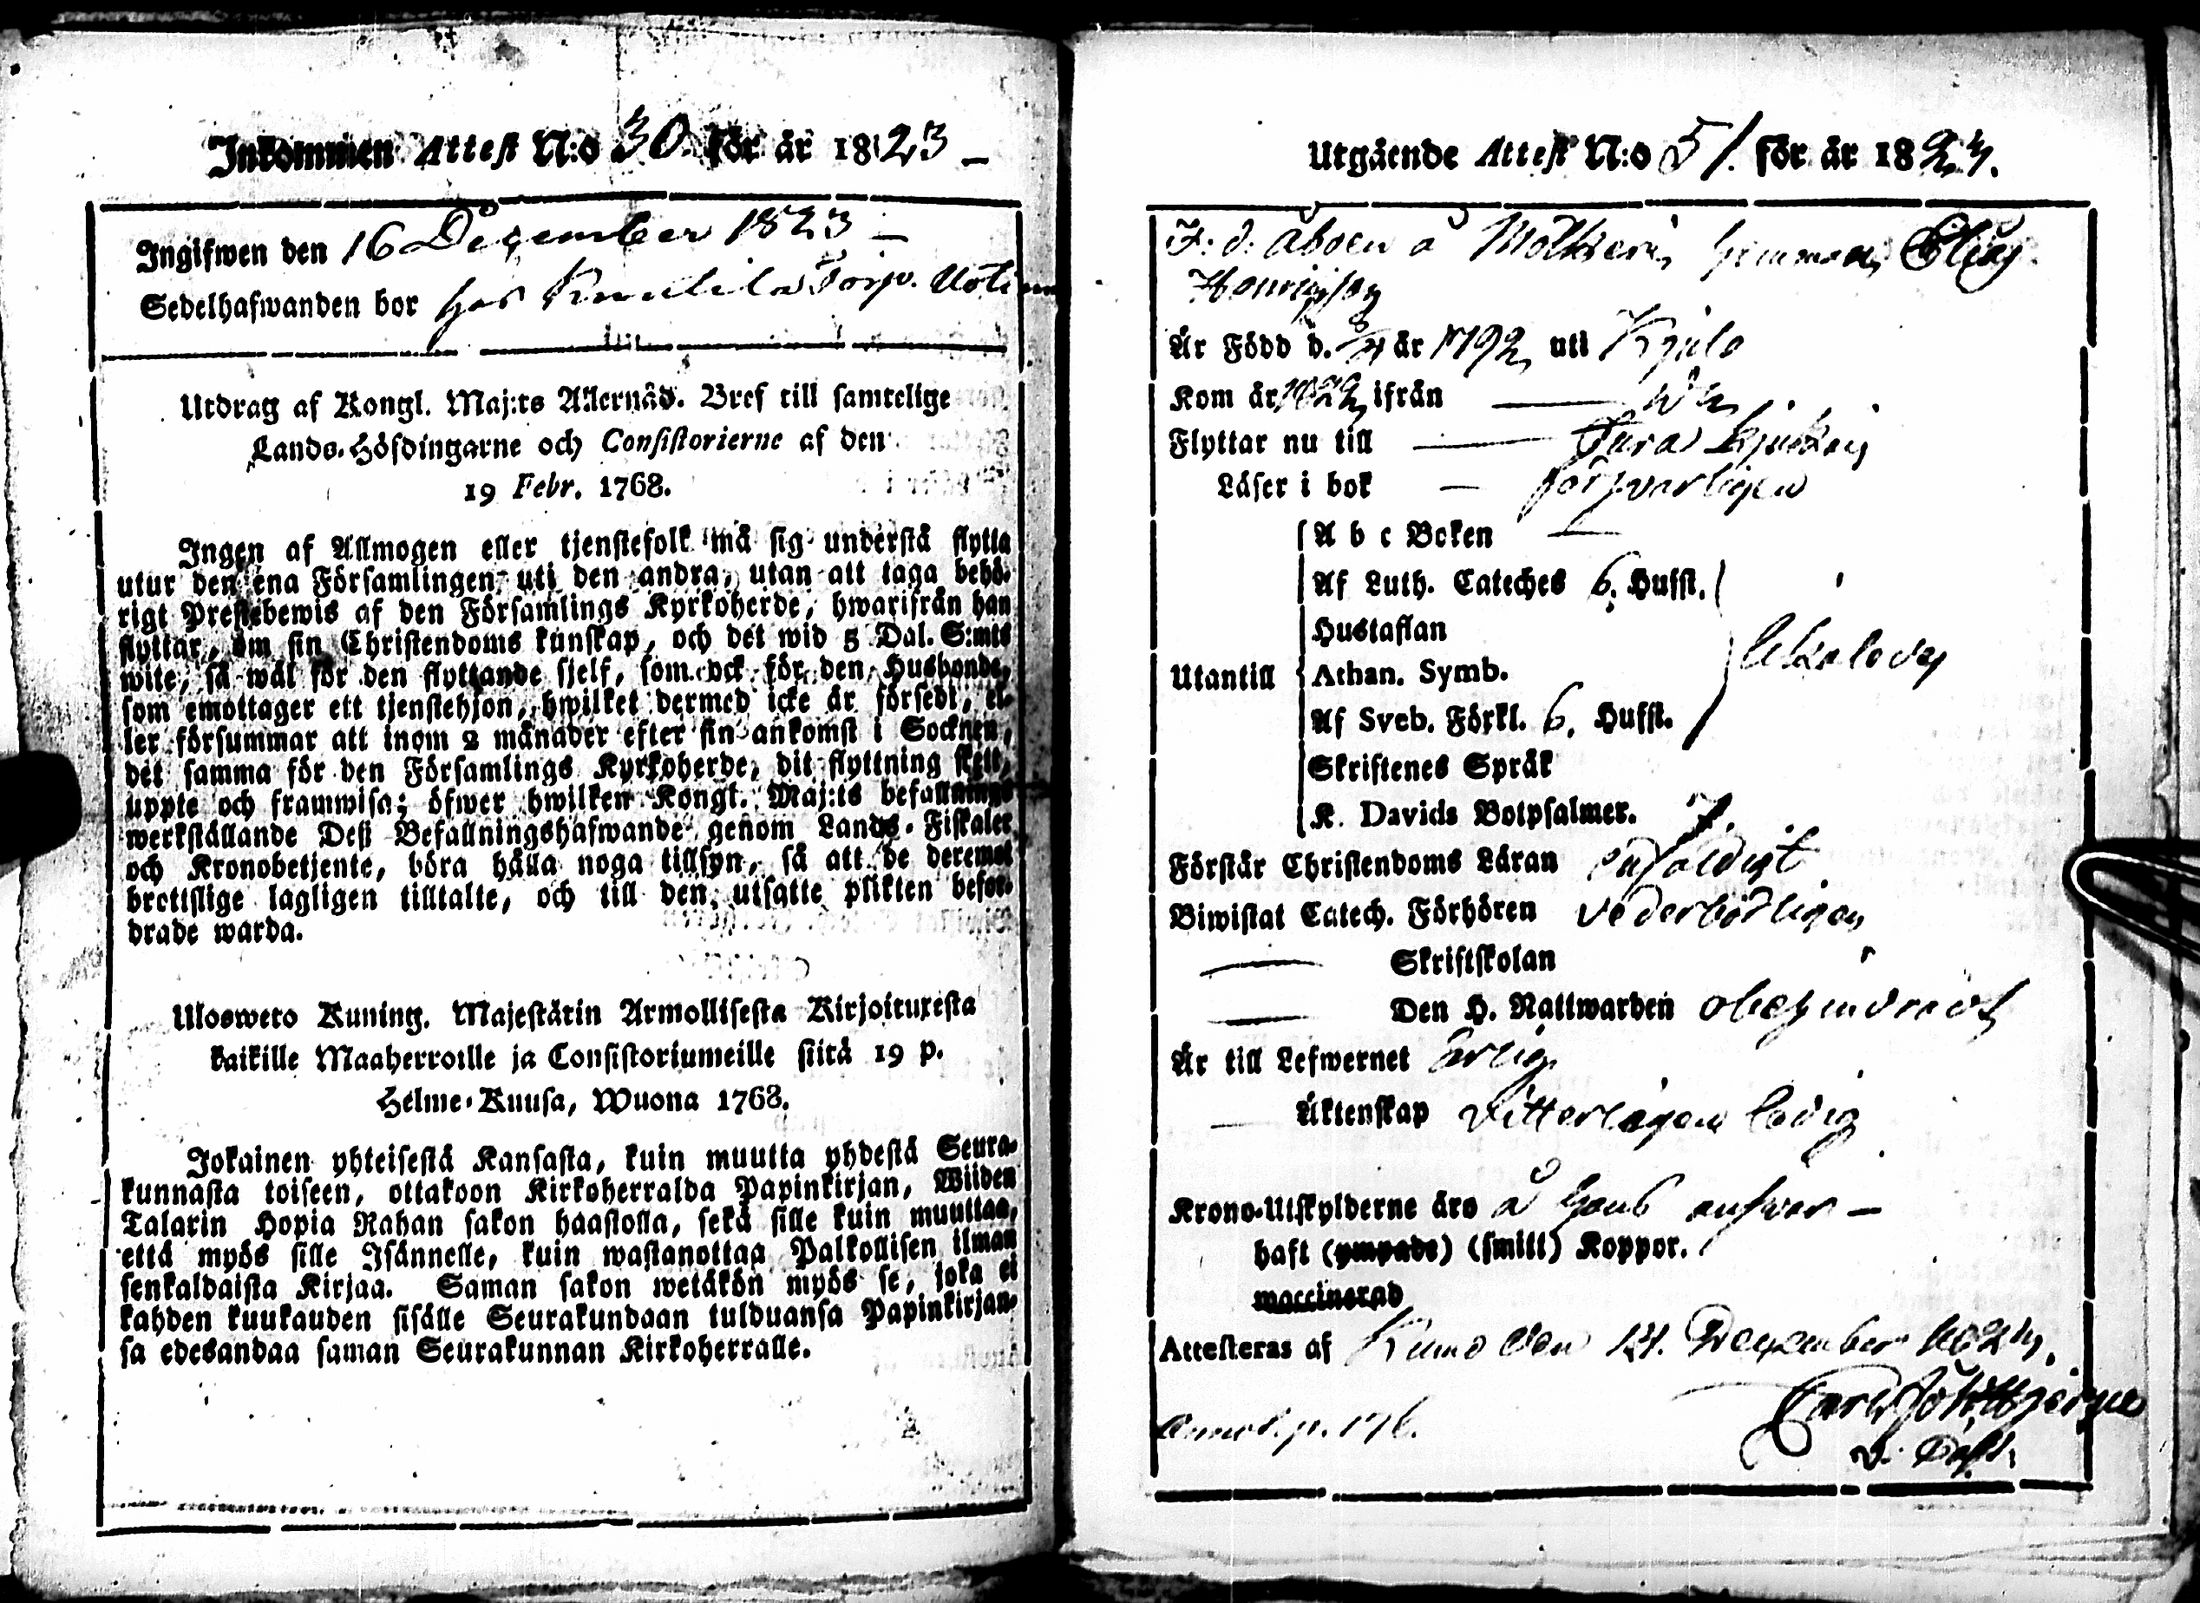 Inkommen Attest N:o 30. för år 1823 –
Ingifwen den 16 December 1823 –
Sedelhafwanden bor hos
Utdrag af Kongl. Maj:ts Allernåd. Bref till samtelige
Lands-Höfdingarne och Consistorierne af den
19 Febr. 1768.
Ingen af Allmogen eller tjenstefolk må sig understå flytta
utur den ena Församlingen uti den andra, utan att taga behö-
rigt Prestebewis af den Församlings Kyrkoherde, hwarifrån han
flyttar, om sin Christendoms kunskap, och det wid 5 Dal. S:mts
wite, så wäl för den flyttande sjelf, som ock för den Husbonde,
som emottager ett tjenstehjon, hwilket dermed icke är försedt, el-
ler försummar att inom 2 månader efter sin ankomst i Socknen,
det samma för den Församlings Kyrkoherde, dit flyttning skett,
uppte och framwisa; öfwer hwilken Kongl. Maj:ts befallnings
werkställande Dess Befallningshafwande genom Lands-Fiskaler
och Kronobetjente, böra hålla noga tillsyn, så att de deremot
brottslige lagligen tilltalte, och till den utsatte plikten befor-
drade warda.
Uloswero Kuning. Majestätin Armollisesta Kirjoituxesta
kaikille Maaherroille ja Consistoriumeille siitä 19 p.
Helme-Kuusa, Wuona 1768.
Jokainen yhteisestä Kansasta, kuin muutta yhdestä Seura-
kunnasta toiseen, ottakoon Kirkoherralda Papinkirjan, Wiiden
Talarin Hopia Rahan sakon haastolla, sekä sille kuin muuttaa,
että myös sille Isännelle, kuin wastanottaa Palkollisen ilman
senkaldaista Kirjaa. Saman sakon wetäkön myös se, joka ei
kahden kuukauden sisälle Seurakundaan tulduansa Papinkirjan-
sa edesandaa saman Seurakunnan Kirkoherralle.
Utgående Attest N:o 51. för år 1823.
F. d. åboen å hemman
Henricsson
Är Född d. år 1792 uti Kjulo
Kom år 1822 ifrån —
Flyttar nu till —
Läser i bok — försvarligen
A b c Boken —
Af Luth. Cateches 6. Hufst.
Hustaflan
Utantill Athan. Symb.
Af Sveb. Förkl. 6. Hufst.
Skriftenes Språk
K. Davids Botpsalmer. 7.
Förstår Christendoms Läran enfaldigt
Biwistat Catech. Förhören vederbörligen
— Skriftskolan
— Den H. Nattwarden obehindradt
Är till Lefwernet ärlig
— Äktenskap vitterligen ledig
Krono-Utskylderne äro å hans ansvar –
haft (ympade) (smitt) Koppor.
waccinerad
Attesteras af Kumo den December 1823.
Annot. p. 176.
Carl